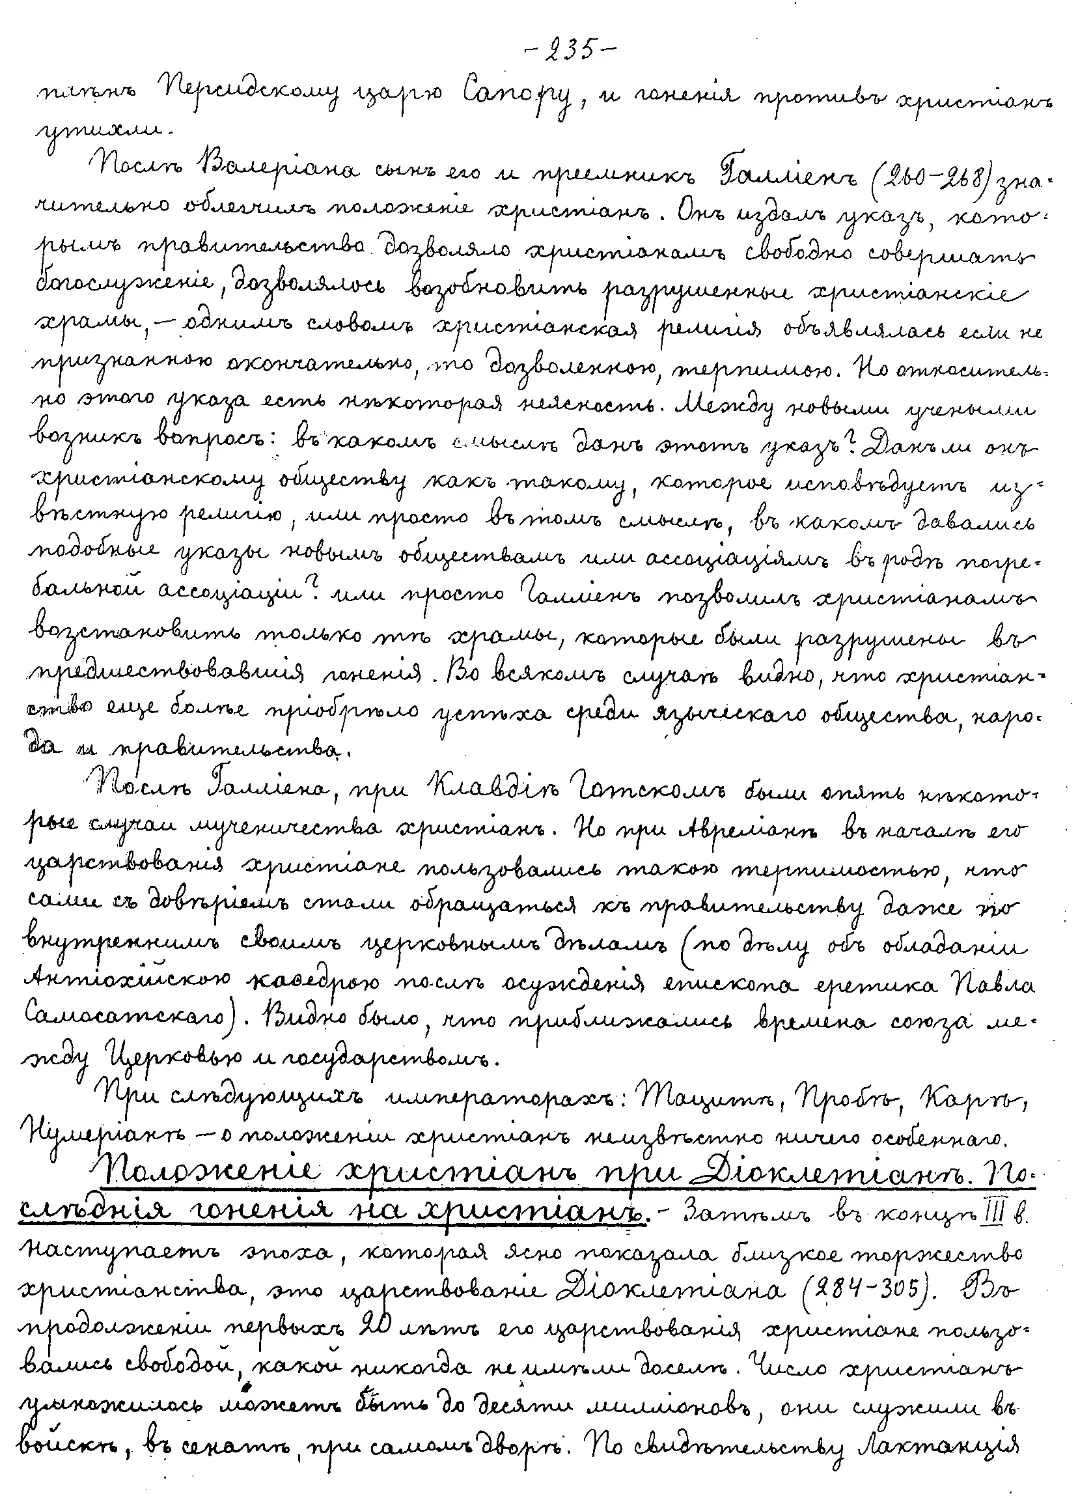 -235-
плѣнъ Персидскому царю Сапору, и гоненія противъ христіанъ
утихли.
Послѣ Валеріана сынъ его и преемникъ Галліенъ (260-268) зна-
чительно облегчилъ положеніе христіанъ. Онъ издалъ указъ, кото-
рымъ правительство дозволяло христіанамъ свободно совершать
богослуженіе, дозволялось возобновить разрушенные христіанскіе
храмы, — однимъ словомъ христіанская религія объявлялась если не
признанною окончательно, то дозволенною, терпимою. Но относитель-
но этого указа есть нѣкоторая неясность. Между новыми учеными
возникъ вопросъ: въ какомъ смыслѣ данъ этотъ указъ? Данъ ли онъ
христіанскому обществу какъ такому, которое исповѣдуетъ из-
вѣстную религію, или просто въ томъ смыслѣ, въ какомъ давались
подобные указы новымъ обществамъ или ассоціаціямъ въ родѣ погре-
бальной ассоціаціи? или просто Галліенъ позволилъ христіанамъ
возстановить только тѣ храмы, которые были разрушены въ
предшествовавшія гоненія. Во всякомъ случаѣ видно, что христіан-
ство еще болѣе пріобрѣло успѣха среди языческаго общества, наро-
да и правительства.
Послѣ Галліена, при Клавдіѣ Готскомъ были опять нѣкото-
рые случаи мученичества христіанъ. Но при Авреліанѣ въ началѣ его
царствованія христіане пользовались такою терпимостью, что
сами съ довѣріемъ стали обращаться къ правительству даже по
внутреннимъ своимъ церковнымъ дѣламъ (по дѣлу объ обладаніи
Антіохійскою каѳедрою послѣ осужденія епископа еретика Павла
Самосатскаго). Видно было, что приближались времена союза ме-
жду Церковью и государствомъ.
При слѣдующихъ императорахъ: Тацитѣ, Пробѣ, Карѣ,
Нумеріанѣ — о положеніи христіанъ неизвѣстно ничего особеннаго.
Положеніе христіанъ при Діоклетіанѣ. По-
слѣднія гоненія на христіанъ. - Затѣмъ въ концѣ III в.
наступаетъ эпоха, которая ясно показала близкое торжество
христіанства, это царствованіе Діоклетіана (284-305). Въ
продолженіи первыхъ 20 лѣтъ его царствованія христіане пользо-
вались свободой, какой никогда не имѣли доселѣ. Число христіанъ
умножилось можетъ быть до десяти милліоновъ, они служили въ
войскѣ, въ сенатѣ, при самомъ дворѣ. По свидѣтельству Лактанція